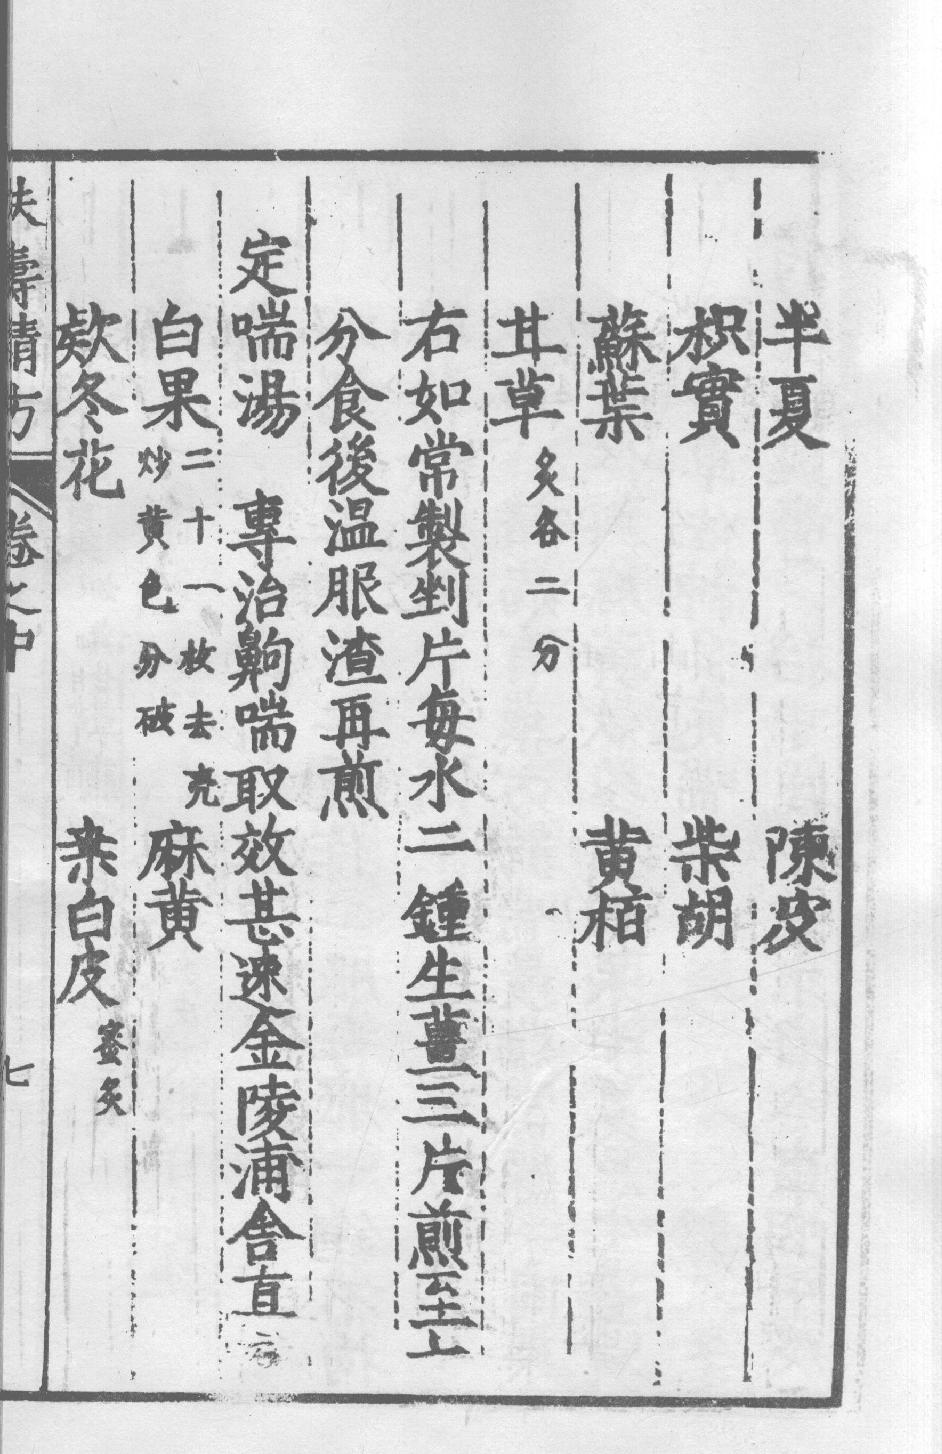 半夏　陳皮
枳實　柴胡
蘇葉　黄栢
甘草炙各二分
右如常製剉片每水二鍾生薑三片煎至七
分食後温服渣再煎
定喘湯　專治齁喘取效甚速金陵浦舍真
白果二十一枚去壳炒黄色分破　麻黄
欵冬花　桒白皮蜜炙
扶壽精方　卷之中　七